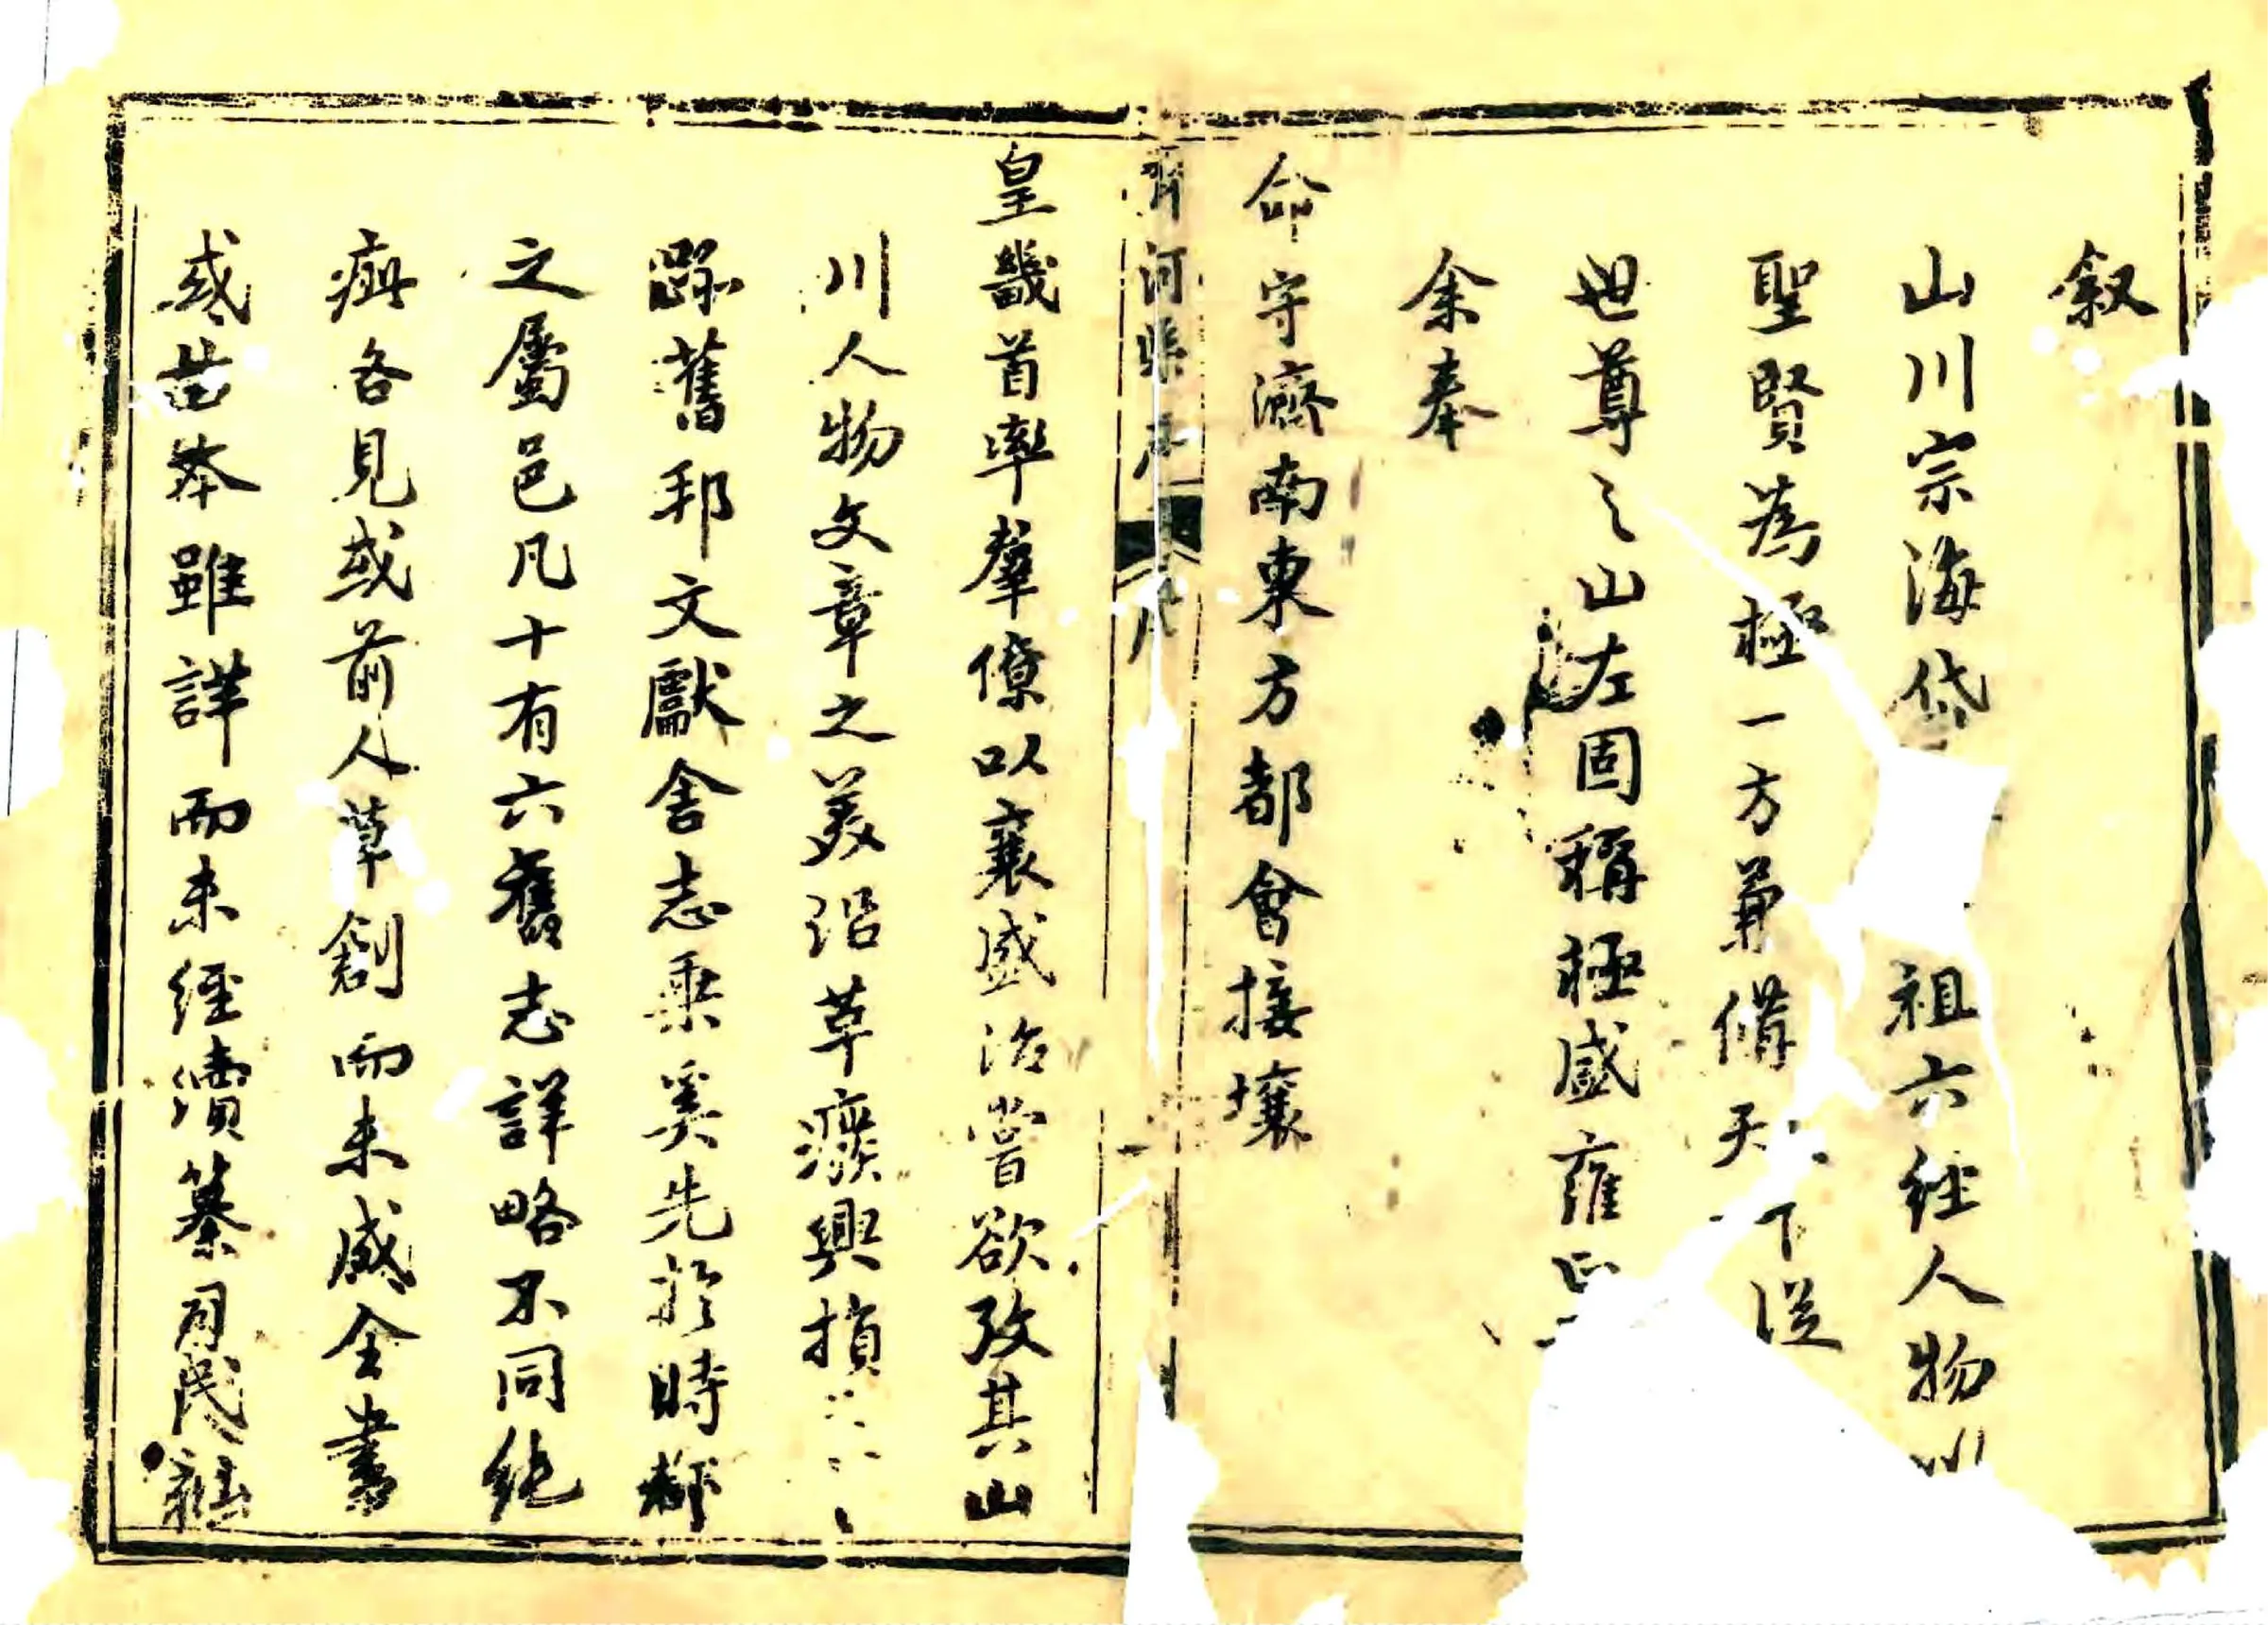 叙
山川宗海岱祖六经人物
聖賢為極一方兼備天下従
世尊之山左固稱極盛雍正
余奉
命守濟南東方都會接壤
齊河縣
皇畿首率羣僚以襄盛治嘗欲攷其山
川人物文章之美沿革癈興損
跡舊邦文獻舍志乗奚先於時
之屬邑凡十有六舊志詳略不同純
疵各見或前人草創而未成全書
或昔本雖詳而未經續纂